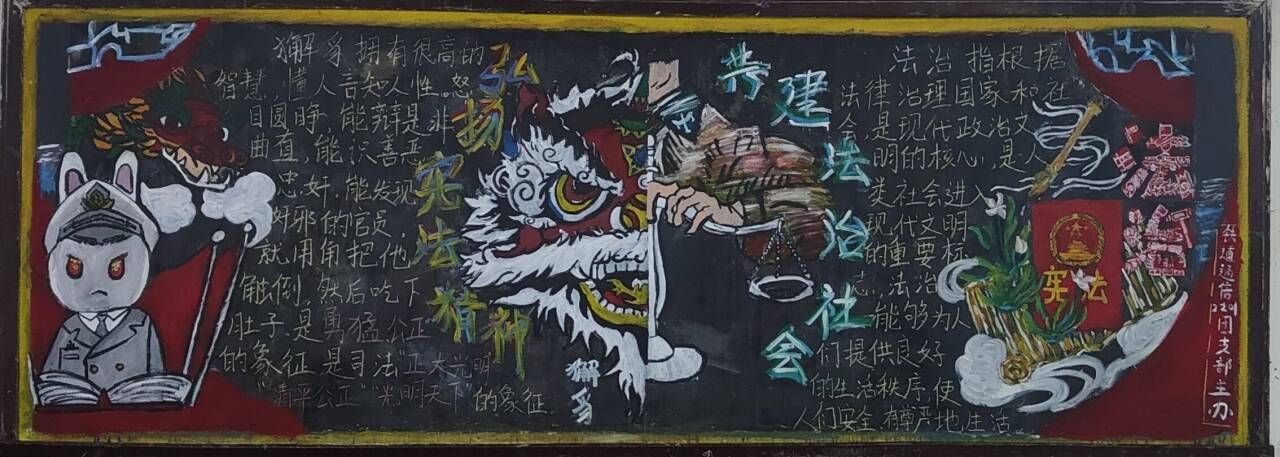 獬豸拥有很高的
智慧,懂人言知人性。怒
目圆睁,能辩是非
曲直,能识善恶
忠奸,能发现
奸邪的官员,
就用角把他
触倒,然后吃下
肚子,是勇猛,公正
的象征,是司法"正大光明
"清平公正""光明天下"的象征
弘扬宪法精神
獬豸
共建法治社会
法治指根据
法律治理国家和社
会,是现代政治文
明的核心,是人
类社会进入
现代文明
的重要标
志,法治
能够为人
们提供良好
的生活秩序,使
人们安全,有尊严地生活
宪法
通信2201团支部主办